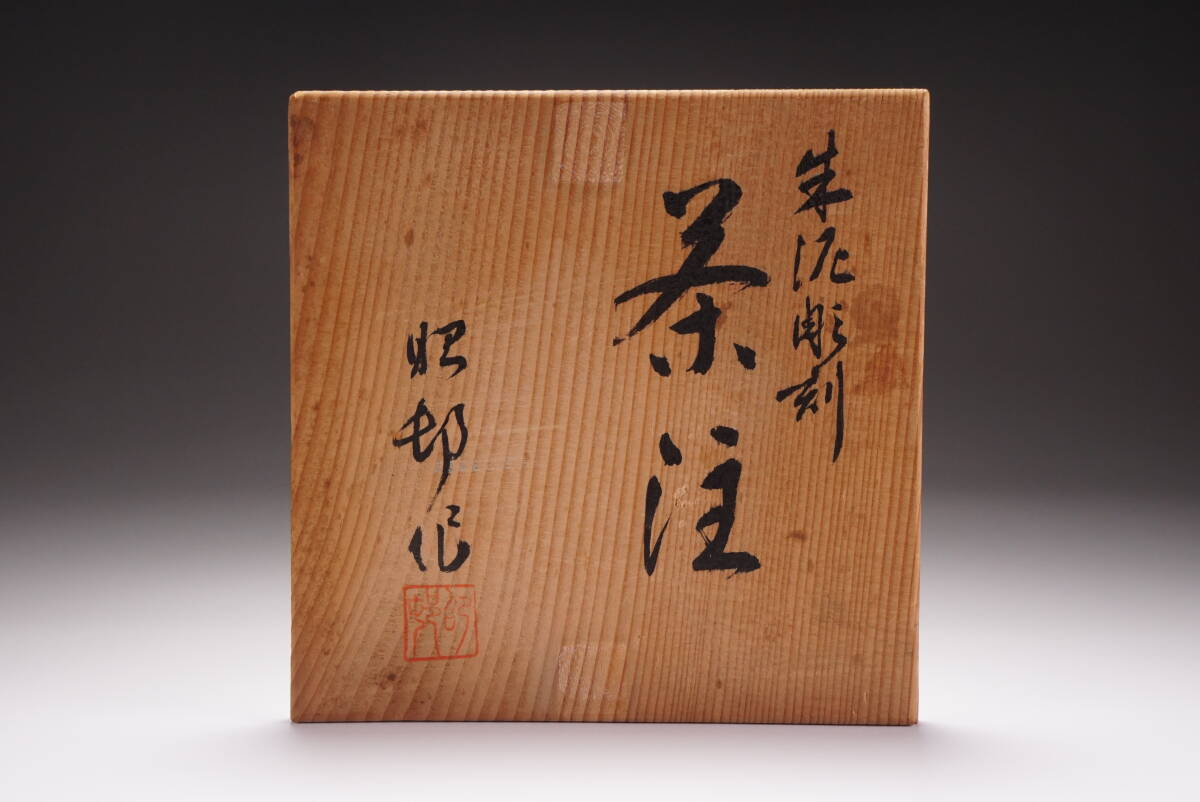 朱泥彫刻
茶注
昭邨作